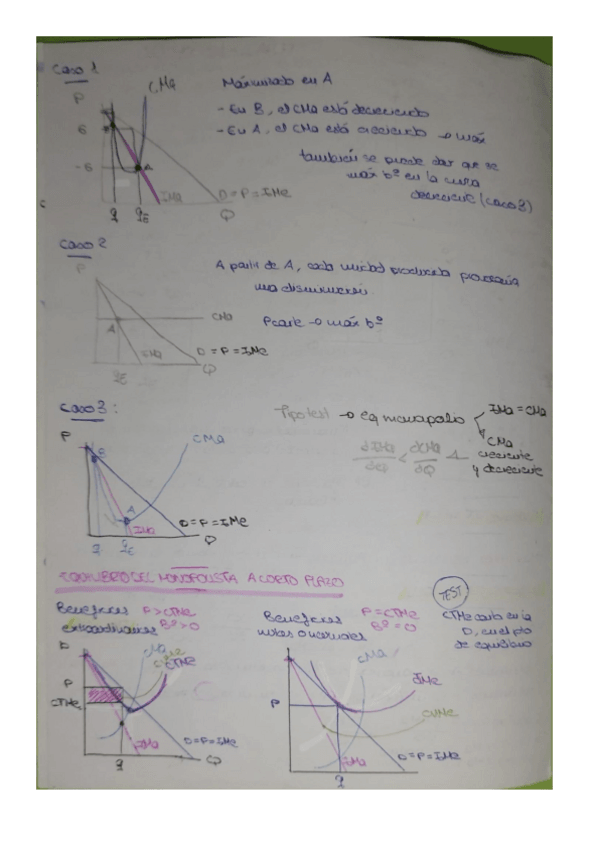 Caso 1
P
CMa
Maximizado en A
- En B, el CMa está decreciendo
- En A, el CMa está creciendo → máx
también se puede dar que se
máx bº en la curva
decreciente (caso 3)
6
6
A
IMa
D = P = IMe
q
qE
Q
Caso 2
P
A partir de A, cada unidad producida
una disminución.
CMa
A
Pcorte → máx bº
IMa
D = P = IMe
qE
Q
Caso 3:
Tipo test → eq monopolio
IMa = CMa
CMa
creciente
y decreciente
dIMa
dQ
<
dCMa
dQ
P
B
CMa
A
IMa
D = P = IMe
q
qE
Q
EQUILIBRIO DEL MONOPOLISTA A CORTO PLAZO
TEST
Beneficios P > CTMe
extraordinarios Bº > 0
Beneficios P = CTMe
nulos o normales Bº = 0
CTMe corta en la
D, en el pto
de equilibrio
P
CMa
CTMe
P
CTMe
IMa
D = P = IMe
q
Q
CMa
IMe
P
CVMe
IMa
D = P = IMe
q